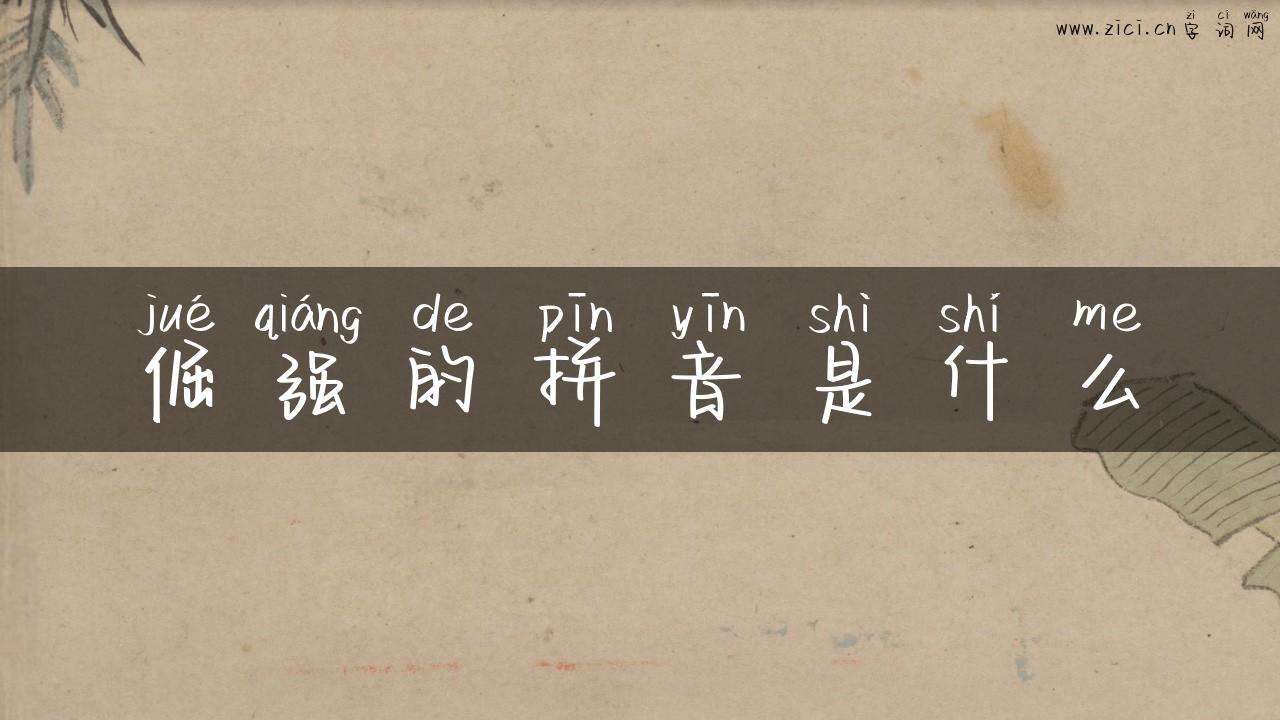 zì cí wǎng
www.zici.cn 字词网
jué qiáng de pīn yīn shì shí me
倔强的拼音是什么